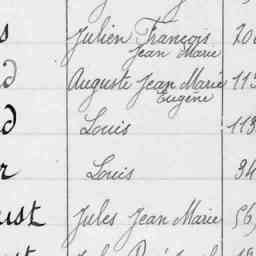 s Julien François 20
Jean Marie
d Auguste Jean Marie 113
Eugène
d Louis 113
r Louis 34
ust Jules Jean Marie 56